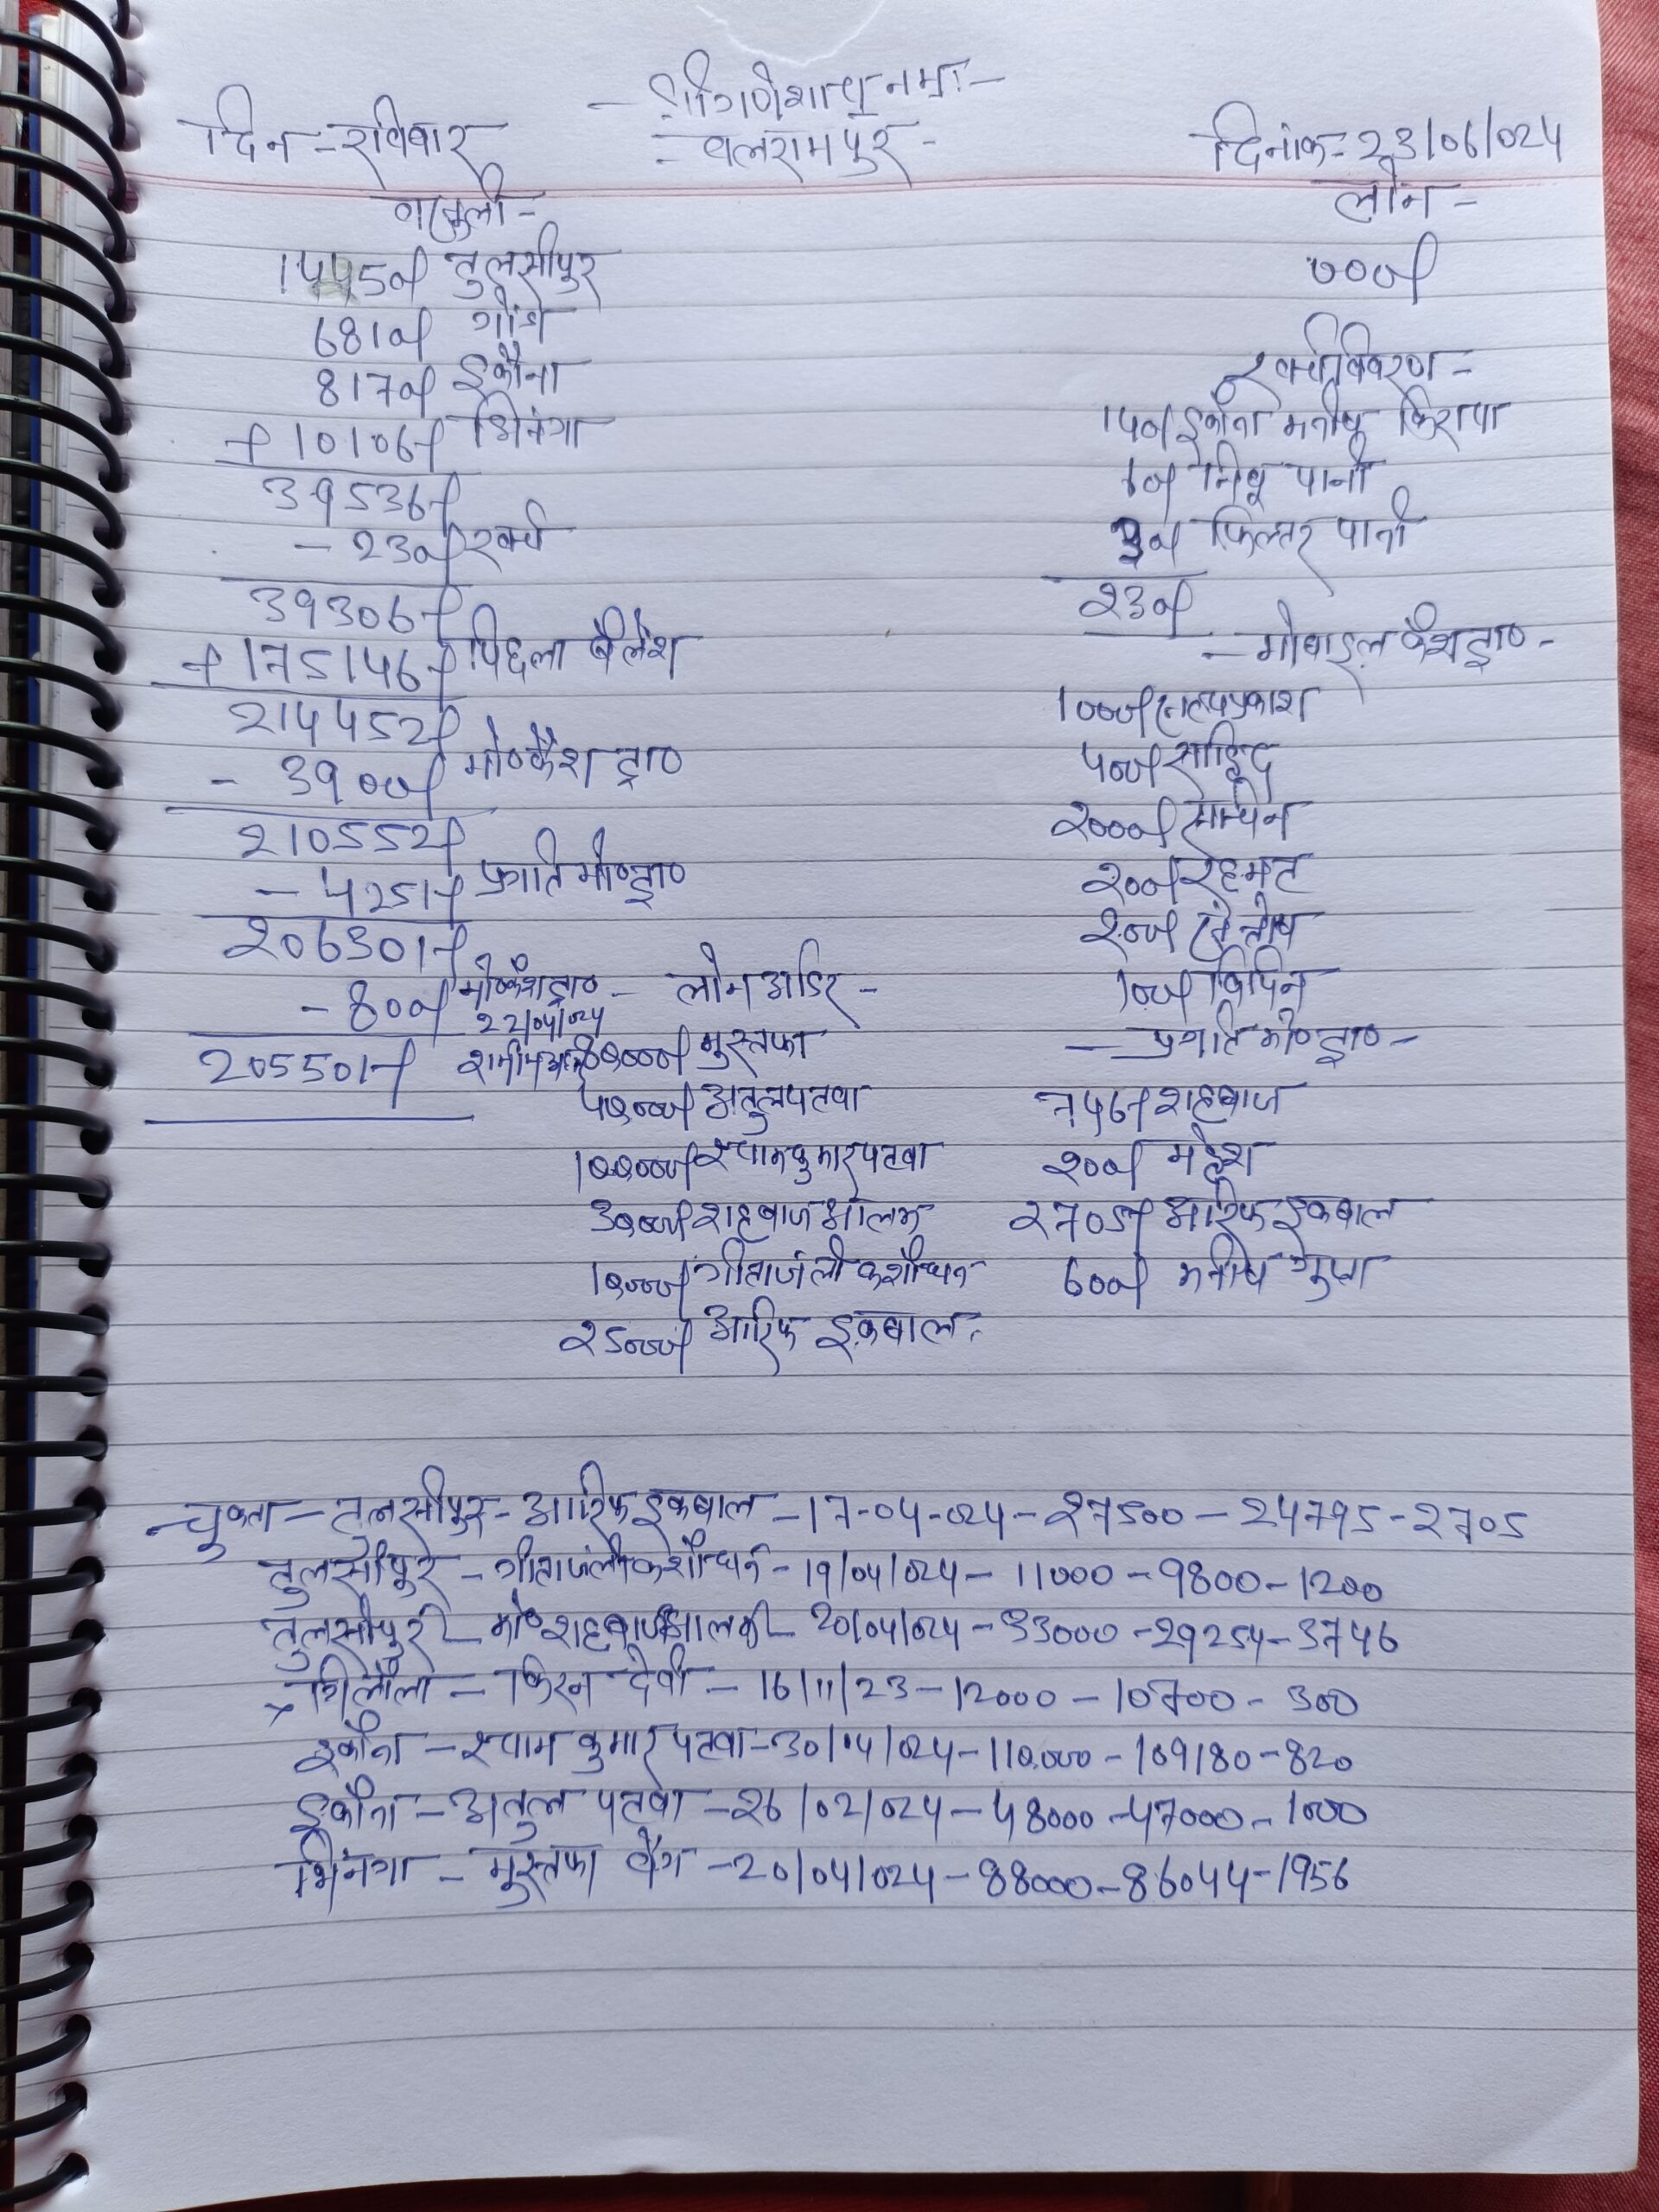 - श्री गणेशाय नमः -
दिन - रविवार
- बलरामपुर -
दिनांक - 23/06/024
वसूली -
14450/ तुलसीपुर
6810/ गोंडा
8170/ इकौना
+ 10106/ भिनगा
39536/
- 230/ खर्च
39306/
+ 175146/ पिछला बैलेंश
214452/
- 3900/ मो० कैश ट्रा०
210552/
- 4251/ प्रगति मो० ट्रा०
206301/
- 800/ मो० कैश ट्रा०
22/04/024
205501/
लोन अडिर -
मुस्तफा
अतुल पटवा
श्याम कुमार पटवा
शहबाज आलम
गीतांजली कशौधन
25000/ आरिफ इकबाल
लोन -
700/
खर्च विवरण -
140/ इकौना मनीष किराया
60/ पानी
30/ फिल्टर पानी
230/
- मोबाइल कैश ट्रा० -
1000/ सत्यप्रकाश
400/ साहिद
2000/ सचिन
200/ रहमत
200/ संतोष
100/ विपिन
- प्रगति मो० ट्रा० -
746/ शहबाज
200/ महेश
2705/ आरिफ इकबाल
600/ मनीष गुप्ता
- चुक्ता - तुलसीपुर - आरिफ इकबाल - 17-04-024 - 27500 - 24795 - 2705
तुलसीपुर - गीतांजली कशौधन - 19/04/024 - 11000 - 9800 - 1200
तुलसीपुर - मो० शहबाज आलम - 20/04/024 - 33000 - 29254 - 3746
x गिलौला - किरन देवी - 16/11/23 - 12000 - 10700 - 300
इकौना - श्याम कुमार पटवा - 30/04/024 - 110000 - 109180 - 820
इकौना - अतुल पटवा - 26/02/024 - 48000 - 47000 - 1000
भिनगा - मुस्तफा वेग - 20/04/024 - 88000 - 86044 - 1956